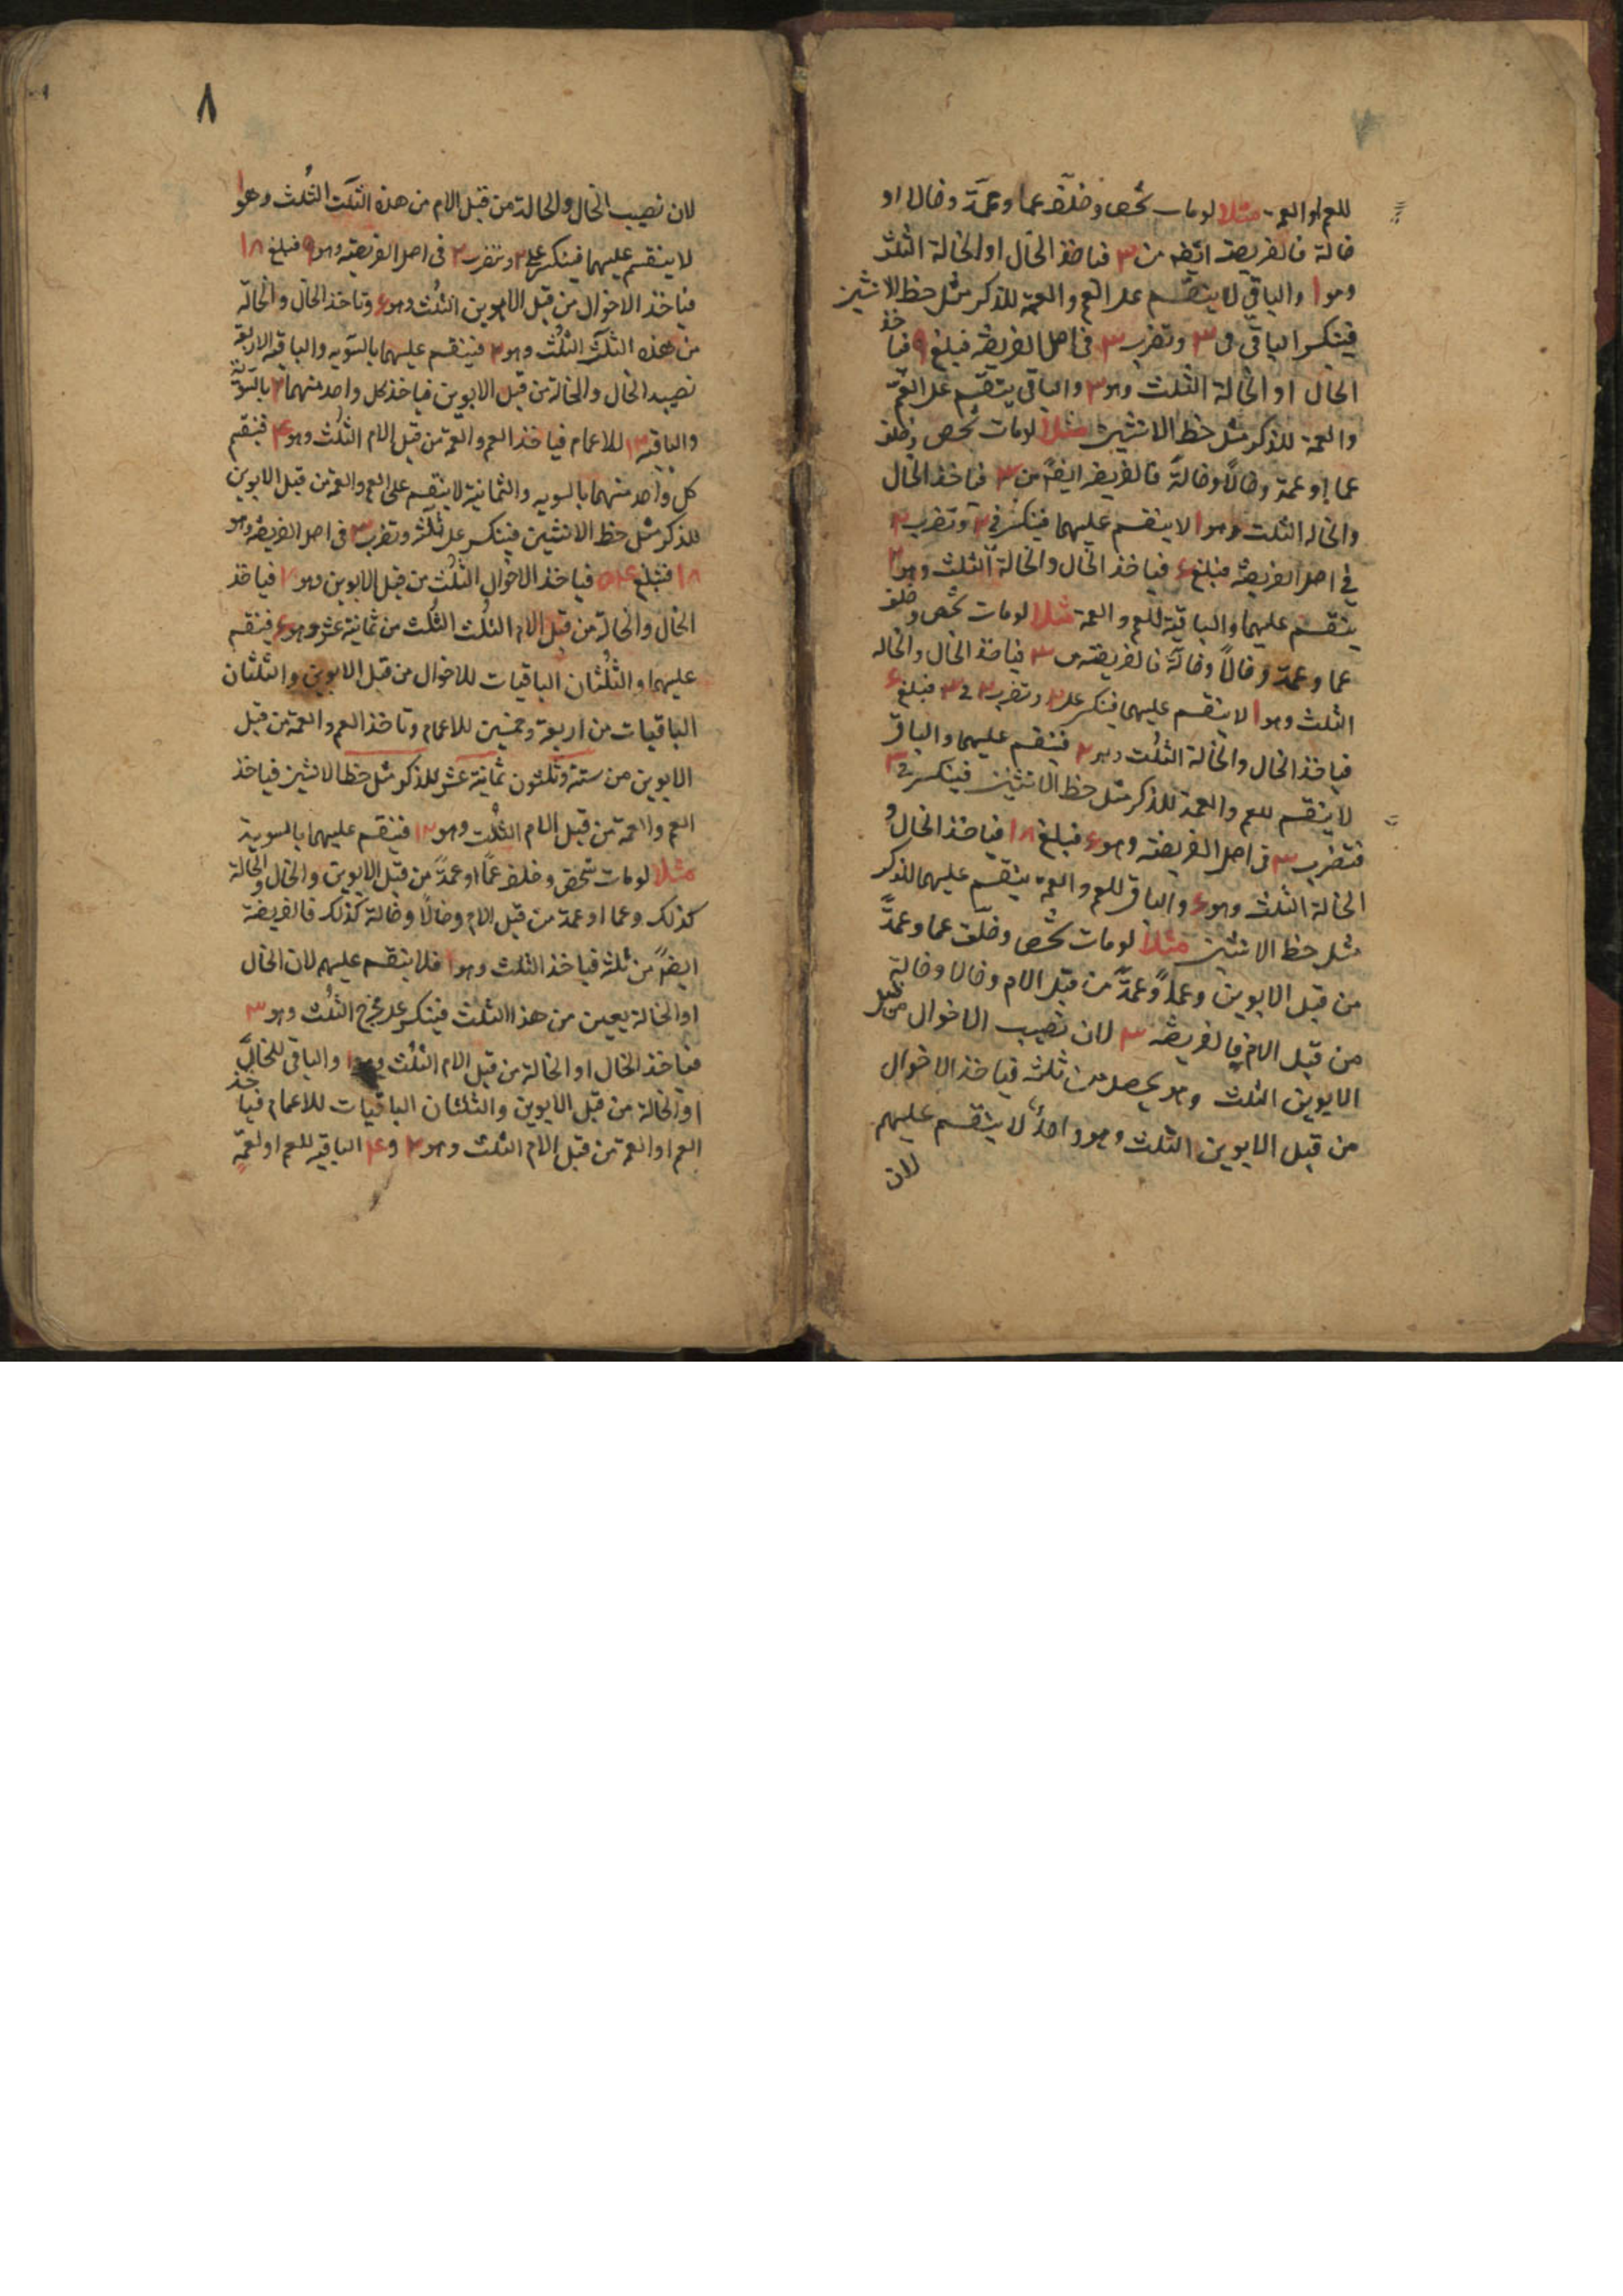 للعم او العمة مثلا لومات شخص وخلف عما وعمة وخالا او
خالة فالفريضة ايضه من ٣ فياخذ الخال او الخالة الثلث
وهو ١ والباقي لا ينقسم على العم والعمة للذكر مثل حظ الانثيين
فينكسر الباقي فى ٣ وتضرب ٣ فى اصل الفريضة فبلغ ٩ فياخذ
الخال او الخالة الثلث وهو ٣ والباقى ينقسم على العم
والعمة للذكر مثل حظ الانثيين مثلا لومات شخص وخلف
عما او عمة وخالاً وخالةً فالفريضه ايضاً من ٣ فياخذ الخال
والخاله الثلث وهو ١ لا ينقسم عليهما فينكسر فى ٢ وتضرب ٢
في اصل الفريضة فبلغ ۶ فياخذ الخال والخالة الثلث وهو ٢
ينقسم عليهما والباقية للعم والعمة مثلا لومات شخص وخلف
عما وعمة وخالاً وخالةً فالفريضة من ٣ فياخذ الخال والخاله
الثلث وهو ١ لا ينقسم عليهما فينكسر على ٢ وتضرب ٢ فى ٣ فبلغ ۶
فياخذ الخال والخالة الثلث وهو ٢ فينقسم عليهما والباقى
لا ينقسم للعم والعمة للذكر مثل حظ الانثيين فينكسر فى ٣
فتضرب ٣ فى اصل الفريضة وهو ۶ فبلغ ١٨ فياخذ الخال و
الخالة الثلث وهو ۶ والباقى للعم والعمة ينقسم عليهما للذكر
مثل حظ الانثيين مثلا لومات شخص وخلف عما وعمةً
من قبل الابوين وعماً وعمةً من قبل الام وخالا وخالة من قبل
من قبل الام فالفريضة ٣ لان نصيب الاخوال
الابوين الثلث وهو يحصل من ثلثة فياخذ الاخوال
من قبل الابوين الثلث وهو واحدٌ لا ينقسم عليهم
لان
٨
لان نصيب الخال والخالة من قبل الام من هذه الثلث الثلث وهو ١
لا ينقسم عليهما فينكسر على ٢ وتضرب ٢ فى اصل الفريضة وهو ٩ فبلغ ١٨
فياخذ الاخوال من قبل الابوين الثلث وهو ۶ وتاخذ الخال والخالة
من هذه الثلث الثلث وهو ٢ فينقسم عليهما بالسويه والباقية الاربعة
نصيب الخال والخالة من قبل الابوين فياخذ كل واحد منهما ٢ بالسوية
والباقية ١٢ للاعمام فياخذ العم والعمة من قبل الام الثلث وهو ۴ فينقسم
كل واحد منهما بالسويه والثمانية لا ينقسم على العم والعمة من قبل الابوين
للذكر مثل حظ الانثيين فينكسر على ثلثة وتضرب ٣ فى اصل الفريضة وهو
١٨ فتبلغ ۵۴ فياخذ الاخوال الثلث من قبل الابوين وهو ١٨ فياخذ
الخال والخالة من قبل الام الثلث الثلث من ثمانية عشر وهو ۶ فينقسم
عليهما والثلثان الباقيات للاخوال من قبل الابوين والثلثان
الباقيات من اربعة وخمسين للاعمام وتاخذ العم والعمة من قبل
الابوين من ستة وثلثون ثمانية عشر للذكر مثل حظ الانثيين فياخذ
العم والعمة من قبل الام الثلث وهو ١٢ فينقسم عليهما بالسوية
مثلا لومات شخص وخلف عماً او عمةً من قبل الابوين والخال والخالة
كذلك وعما او عمة من قبل الام وخالاً وخالة كذلك فالفريضة
ايضاً من ثلثة فياخذ الثلث وهو ١ فلا ينقسم عليهم لان الخال
او الخالة يعين من هذا الثلث فينكسر على مخرج الثلث وهو ٣
فياخذ الخال او الخالة من قبل الام الثلث وهو ١ والباقى للخال
او الخالة من قبل الابوين والثلثان الباقيات للاعمام فياخذ
العم او العمة من قبل الام الثلث وهو ٢ و ۴ الباقية للعم او لعمة